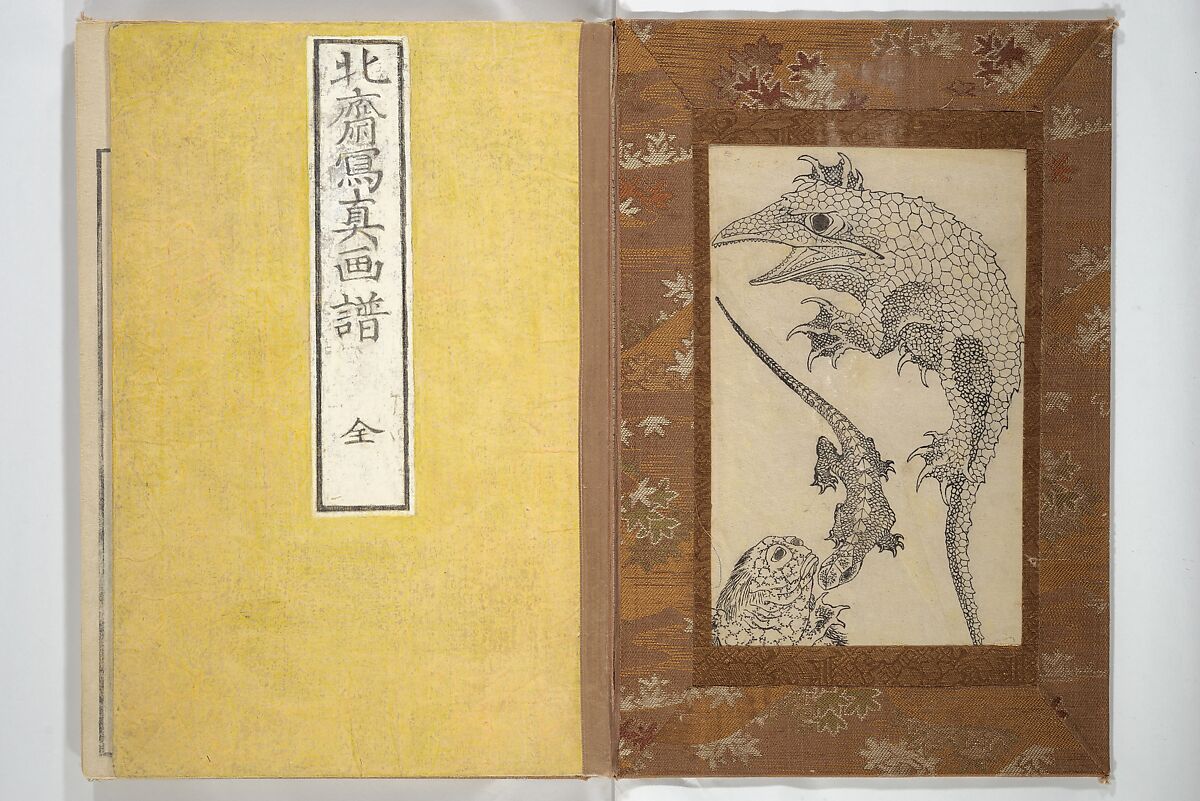 北齋寫真画譜 全